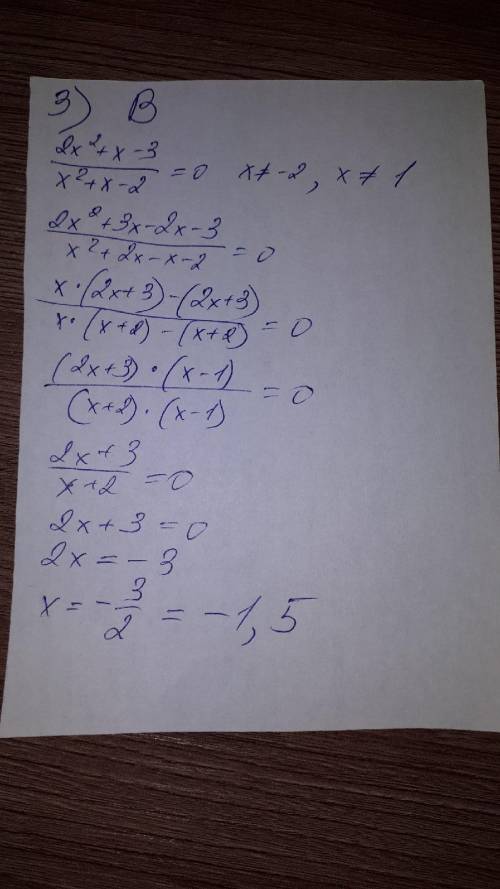 3) В
(2x²+x-3)/(x²+x-2) = 0 x≠-2, x≠1
(2x²+3x-2x-3)/(x²+2x-x-2) = 0
(x·(2x+3)-(2x+3))/(x·(x+2)-(x+2)) = 0
((2x+3)·(x-1))/((x+2)·(x-1)) = 0
(2x+3)/(x+2) = 0
2x+3=0
2x=-3
x=-3/2=-1,5